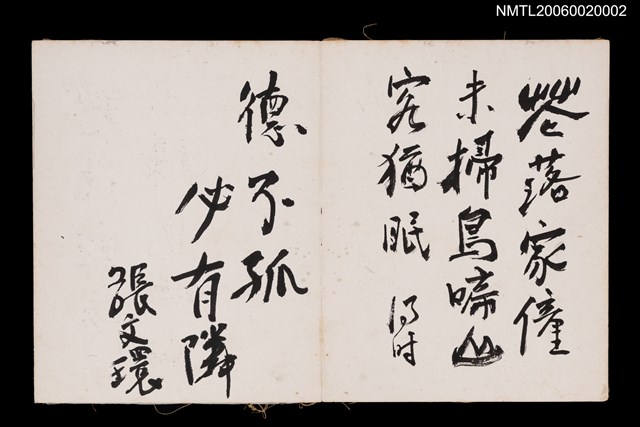 NMTL20060020002
花落家僮
未掃鳥啼山
客猶眠 得时
德不孤
必有隣
張文環